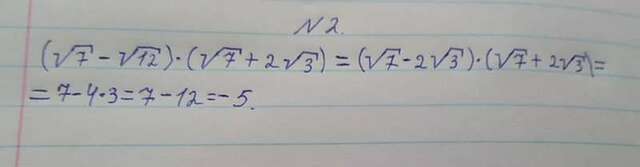 N 2.
(√7 - √12)·(√7 + 2√3) = (√7 - 2√3)·(√7 + 2√3) =
= 7 - 4·3 = 7 - 12 = - 5.